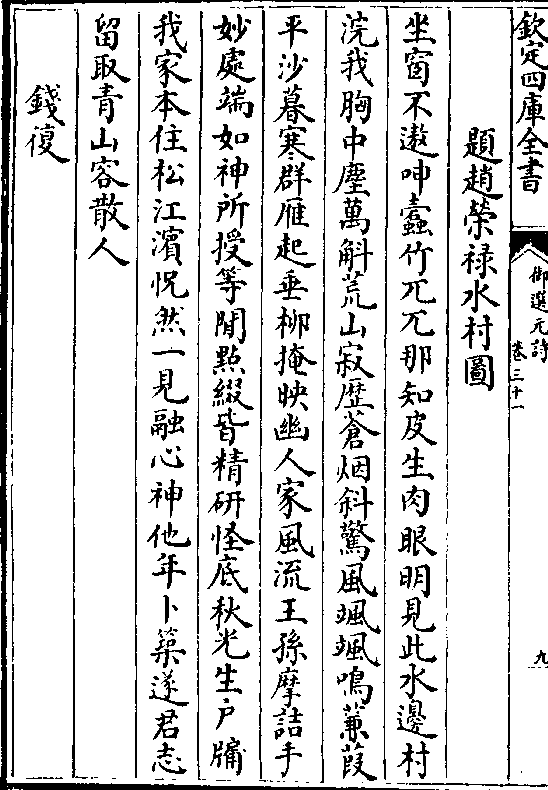 欽定四庫全書
御選元詩
卷三十一
九
題趙榮祿水村圖
坐窗不遨呻蠹竹兀兀那知皮生肉眼明見此水邊村
浣我胸中塵萬斛荒山寂歷蒼烟斜驚風颯颯鳴蒹葭
平沙暮寒群雁起垂柳掩映幽人家風流王孫摩詰手
妙處端如神所授等閒點綴皆精研怪底秋光生戶牖
我家本住松江濱怳然一見融心神他年卜築遂君志
留取青山容散人
錢復